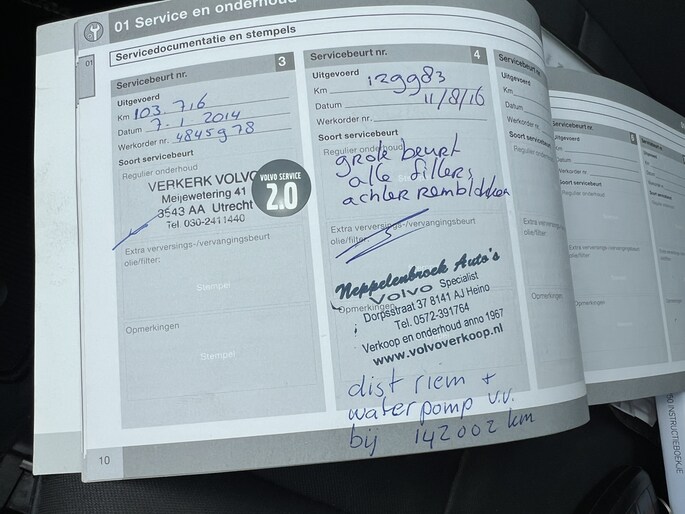 01 Service en onderhoud
Servicedocumentatie en stempels
01
Servicebeurt nr. 3
Uitgevoerd
Km 103.716
Datum 7.1 2014
Werkorder nr. 4845978
Soort servicebeurt
Regulier onderhoud
VERKERK VOLVO
Meijewetering 41
3543 AA Utrecht
Tel 030-2411440
VOLVO SERVICE
2.0
Extra verversings-/vervangingsbeurt
olie/filter:
Stempel
Opmerkingen
Stempel
10
Servicebeurt nr. 4
Uitgevoerd
Km 129983
Datum 11/8/16
Werkorder nr.
Soort servicebeurt
Regulier onderhoud
grote beurt
alle filters
achter remblokken
Extra verversings-/vervangingsbeurt
olie/filter:
Neppelenbroek Auto's
VOLVO Specialist
Opmerkingen
Dorpsstraat 37 8141 AJ Heino
Tel. 0572-391764
Verkoop en onderhoud anno 1967
www.volvoverkoop.nl
dist riem +
waterpomp v.v.
bij 142002 km
Servicebeurt nr.
Uitgevoerd
Km
Datum
Werkorder nr.
Soort servicebeurt
Regulier onderhoud
Extra
olie/filter:
Opmerkingen
Servicebeurt nr. 6
Uitgevoerd
Km
Datum
Werkorder nr.
Soort servicebeurt
Regulier onderhoud
Extra verversings-/vervangingsbeurt
olie/filter:
Opmerkingen
INSTRUCTIEBOEKJE